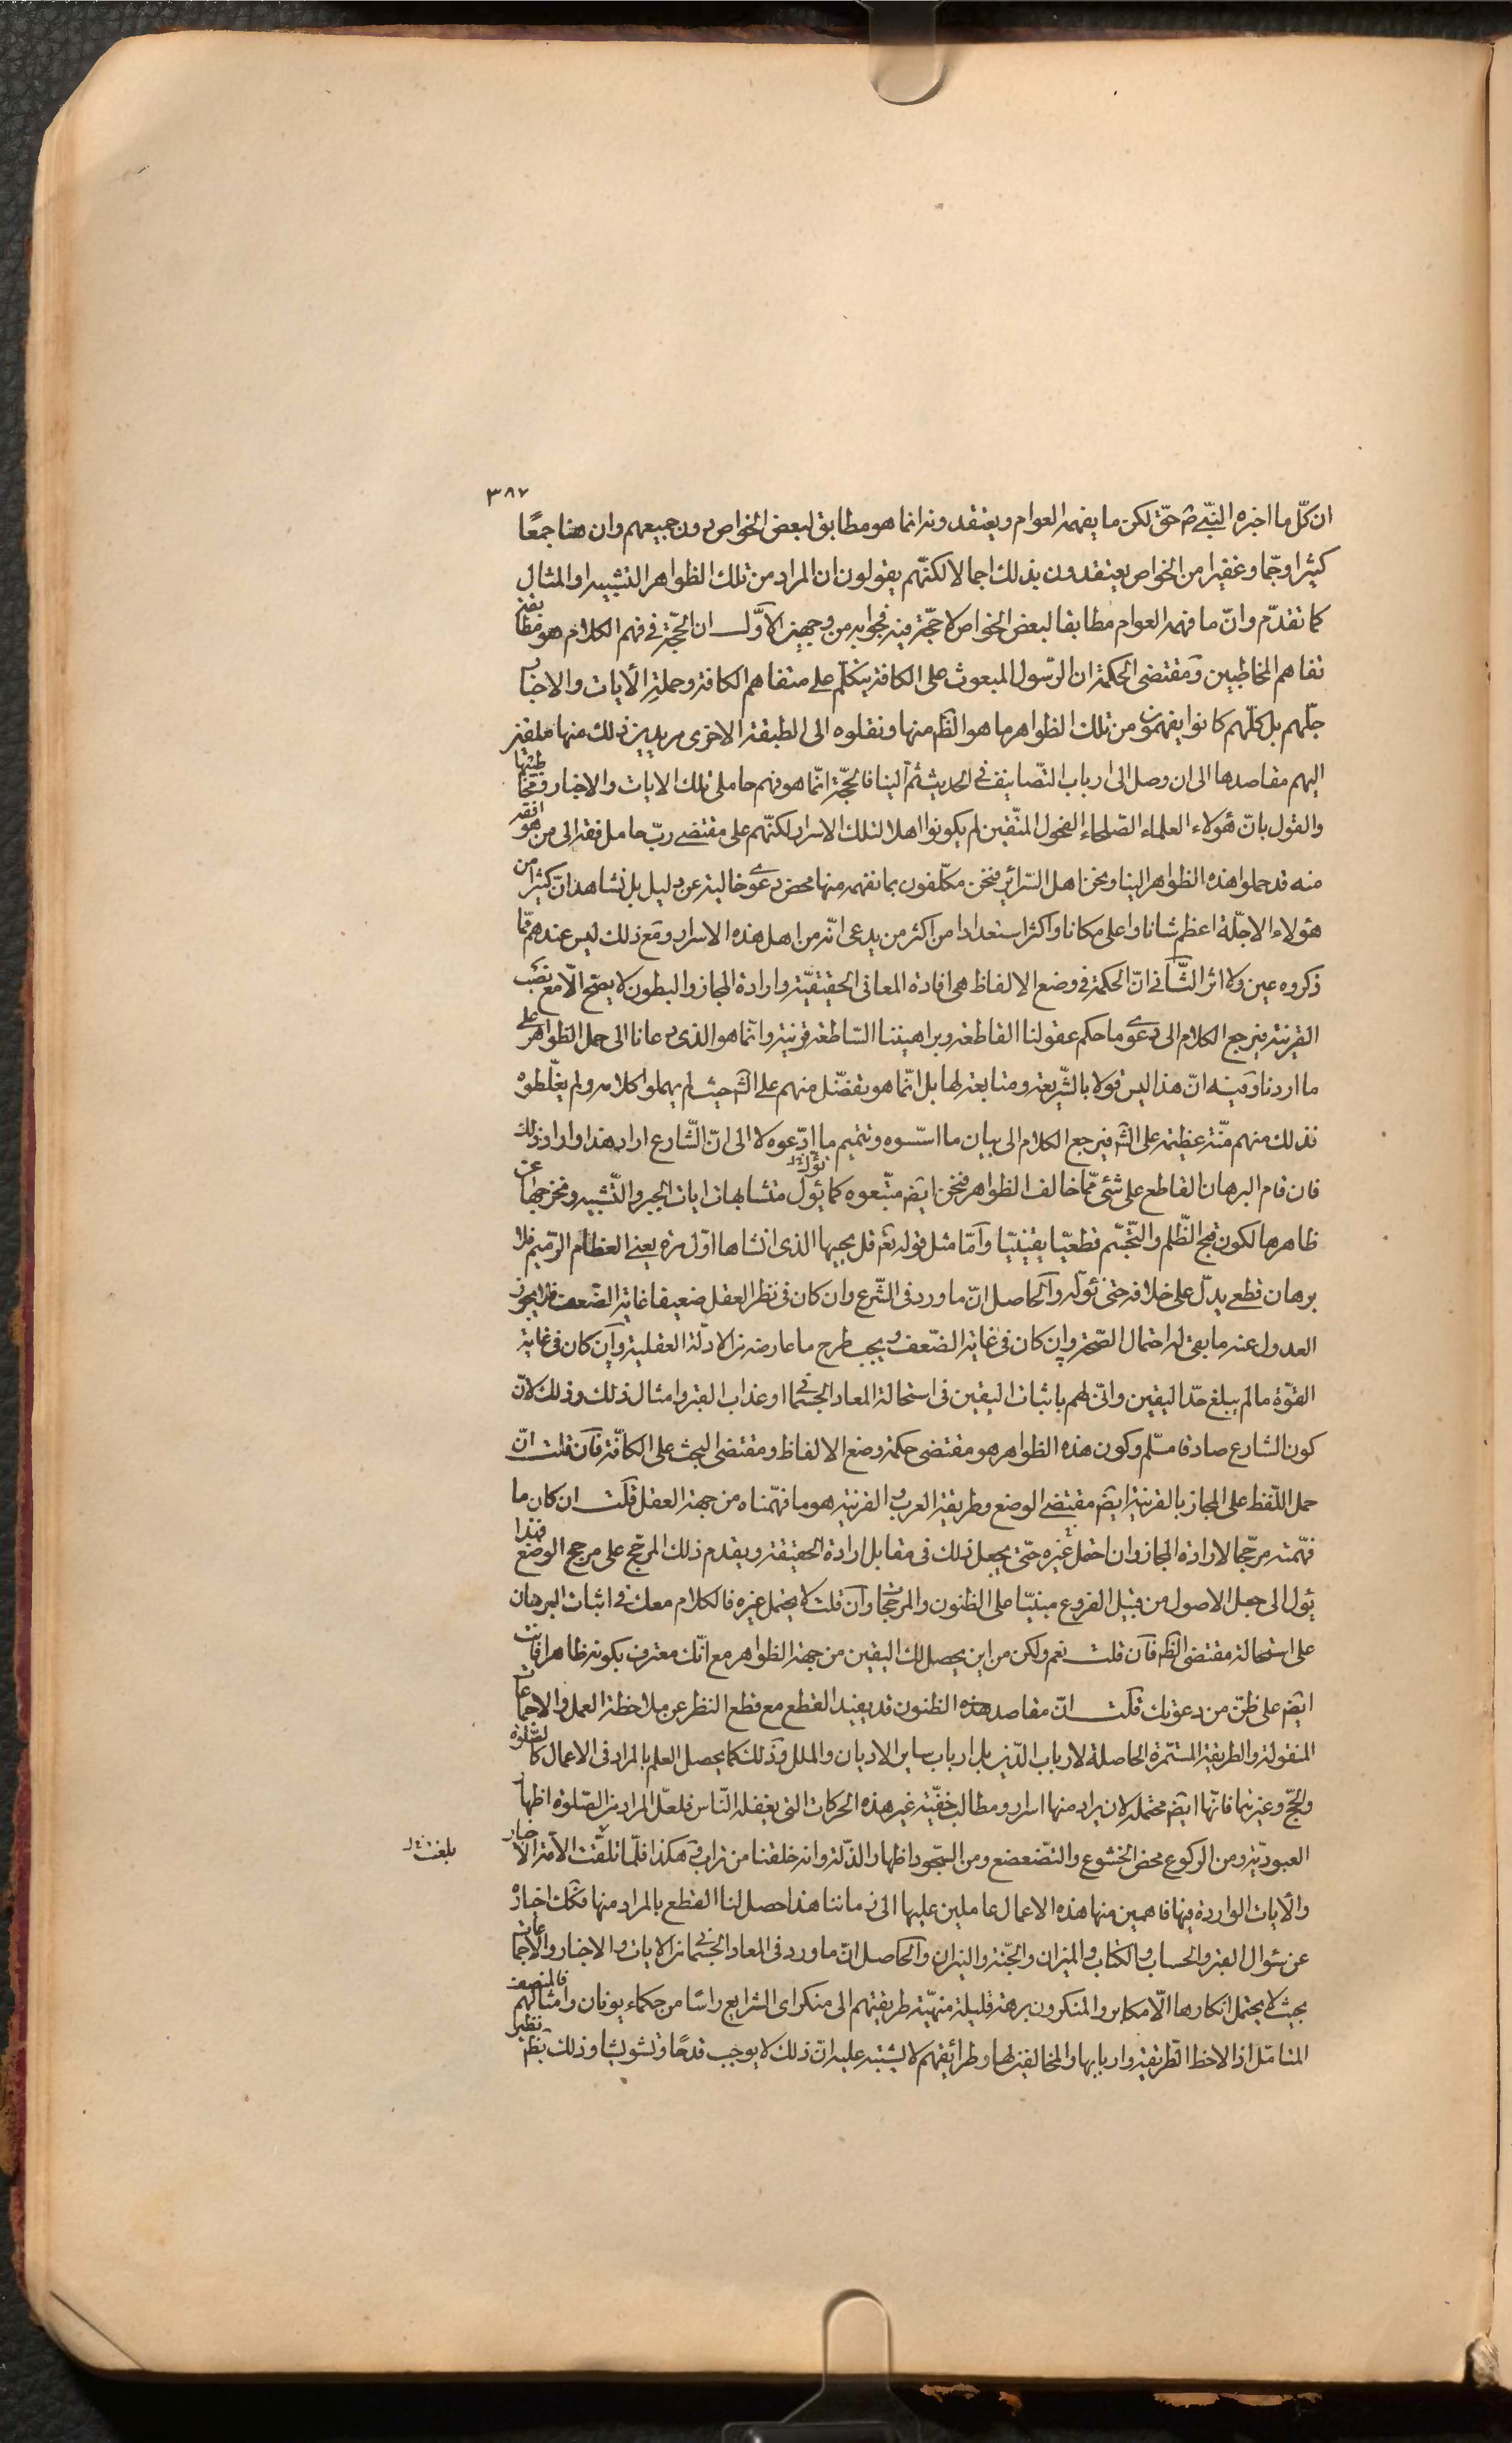 ٣٨٧
ان كلّ ما اخبره النبىّ ص حقّ لكن ما يفهمه العوام ويعتقدونه انما هو مطابق لبعض الخواص دون جميعهم وان هنا جمعًا
كثيرا وجمّا وغفيرا من الخواص يعتقدون بذلك اجمالا لكنّهم يقولون ان المراد من تلك الظواهر التشبيه او المثال
كما تقدّم وانّ ما فهمه العوام مطابقا لبعض الخواص لا حجّة فيه فجوابه من وجهين الاوّل ان الحجّة فى فهم الكلام هو مطابقة
تفاهم المخاطبين ومقتضى الحكمة ان الرّسول المبعوث على الكافة يتكلّم على متفاهم الكافة وحملة الآيات والاخبار
جلّهم بل كلّهم كانوا يفهمون من تلك الظواهر ما هو الظّم منها ونقلوه الى الطبقة الاخرى مريدين ذلك منها ملقين
اليهم مقاصدها الى ان وصل الى ارباب التّصانيف فى الحديث ثم الينا فالحجّة انّما هو فهم حاملى تلك الايات والاخبار ومخاطبيها
والقول بانّ هؤلاء العلماء الصّلحاء الفحول المتّقين لم يكونوا اهلا لتلك الاسرار لكنّهم على مقتضى ربّ حامل فقه الى من هو افقه
منه قد حملوا هذه الظواهر الينا ونحن اهل السّرائر فنحن مكلّفون بما نفهمه منها محض دعوى خالية عن دليل بل نشاهد انّ كثيرا من
هؤلاء الاجلّة اعظم شانا واعلى مكانا واكثر استعدادا من اكثر من يدعى انّه من اهل هذه الاسرار ومع ذلك ليس عندهم ممّا
ذكروه عين ولا اثر الثّانى انّ الحكمة فى وضع الالفاظ هى افادة المعانى الحقيقيّة وارادة المجاز والبطون لا يصحّ الّا مع نصب
القرينة فيرجع الكلام الى دعوى ما حكم عقولنا القاطعة وبراهيننا السّاطعة قرينة وانّما هو الذى دعانا الى حمل الظواهر على
ما اردنا وفيه انّ هذا ليس قولا بالشّريعة ومتابعة لها بل انّما هو تفضّل منهم على الشّ حيث لم يهملوا كلامه ولم يغلّطوه
فذلك منهم منّة عظيمة على الشّ فيرجع الكلام الى بيان ما اسّسوه وتتميم ما ادّعوه لا الى انّ الشّارع اراد هذا او اراد ذلك
فان قام البرهان القاطع على شئ ممّا خالف الظواهر فنحن ايض متّبعوه كما نؤل متشابهات ايات الجبر والتّشبيه ونخرجها عن
ظاهرها لكون قبح الظّلم والتّجسّم قطعيّا يقينيّا وامّا مثل قوله تعم قل يحييها الذى انشاها اوّل مرة يعنى العظام الرّميم فلا
برهان قطع يدلّ على خلافه حتى نؤله والحاصل انّ ما ورد فى الشّرع وان كان فى نظر العقل ضعيفا غاية الضّعف فلا يجوز
العدول عنه ما بقى له احتمال الصّحة وان كان فى غاية الضّعف ويجب طرح ما عارضه من الادلّة العقلية وان كان فى غاية
القوّة ما لم يبلغ حدّ اليقين وانّى لهم باثبات اليقين فى استحالة المعاد الجسمانى او عذاب القبر وامثال ذلك وذلك لانّ
كون الشارع صادقا مسلّم وكون هذه الظواهر هو مقتضى حكمة وضع الالفاظ ومقتضى البعث على الكافّة فان قلت انّ
حمل اللّفظ على المجاز بالقرينة ايض مقتضى الوضع وطريقة العرب والقرينة هو ما فهّمناه من جهة العقل قلت ان كان ما
فهّمته مرجّحا لارادة المجاز وان احتمل غيره حتّى يجعل ذلك فى مقابل ارادة الحقيقة ويقدم ذلك المرجّح على مرجح الوضع فهذا
يؤل الى جعل الاصول من قبيل الفروع مبنيّا على الظنون والمرجّحات وان قلت لا يحتمل غيره فالكلام معك فى اثبات البرهان
على استحالة مقتضى الظّم فان قلت نعم ولكن من اين يحصل لك اليقين من جهة الظواهر مع انّك معترف بكونه ظاهرا فانت
ايض على ظنّ من دعوتك قلت انّ مقاصد هذه الظنون قد يفيد القطع مع قطع النظر عن ملاحظة العمل والاجماعات
المنقولة والطريقة المستمّرة الحاصلة لارباب الدّين بل ارباب ساير الاديان والملل وذلك كما يحصل العلم بالمراد فى الاعمال كالصّلوة
والحجّ وغيرهما فانّها ايض محتملة لان يراد منها اسرار ومطالب خفيّة غير هذه الحركات التى يفعله النّاس فلعلّ المراد من الصّلوة اظهار
العبوديّة ومن الركوع محض الخشوع والتّضعضع ومن السّجود اظهار الذّلة وانه خلقنا من تراب وهكذا فلمّا تلقّت الامّة الاخبار
والآيات الواردة فيها فاهمين منها هذه الاعمال عاملين عليها الى زماننا هذا حصل لنا القطع بالمراد منها فكك اخباره
عن سؤال القبر والحساب والكتاب والميزان والجنّة والنيران والحاصل انّ ما ورد فى المعاد الجسمانى من الايات والاخبار والاجماعات
بحيث لا يحتمل انكارها الّا مكابر والمنكرون برهة قليلة منهيّة طريقتهم الى منكرى الشرايع راسًا من حكماء يونان وامثالهم فالمنصف
المتامّل اذا لاحظ الطريقة واربابها والمخالفين لها وطرائقهم لا يشتبه عليه انّ ذلك لا يوجب قدحًا وتشويشا وذلك نظير
بلغت